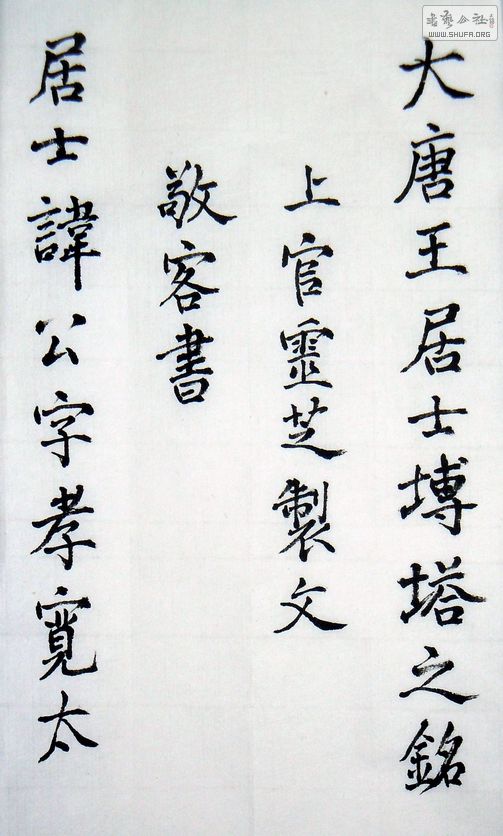 大唐王居士塼塔之銘
上官靈芝製文
敬客書
居士諱公字孝寬太
書藝公社
WWW.SHUFA.ORG